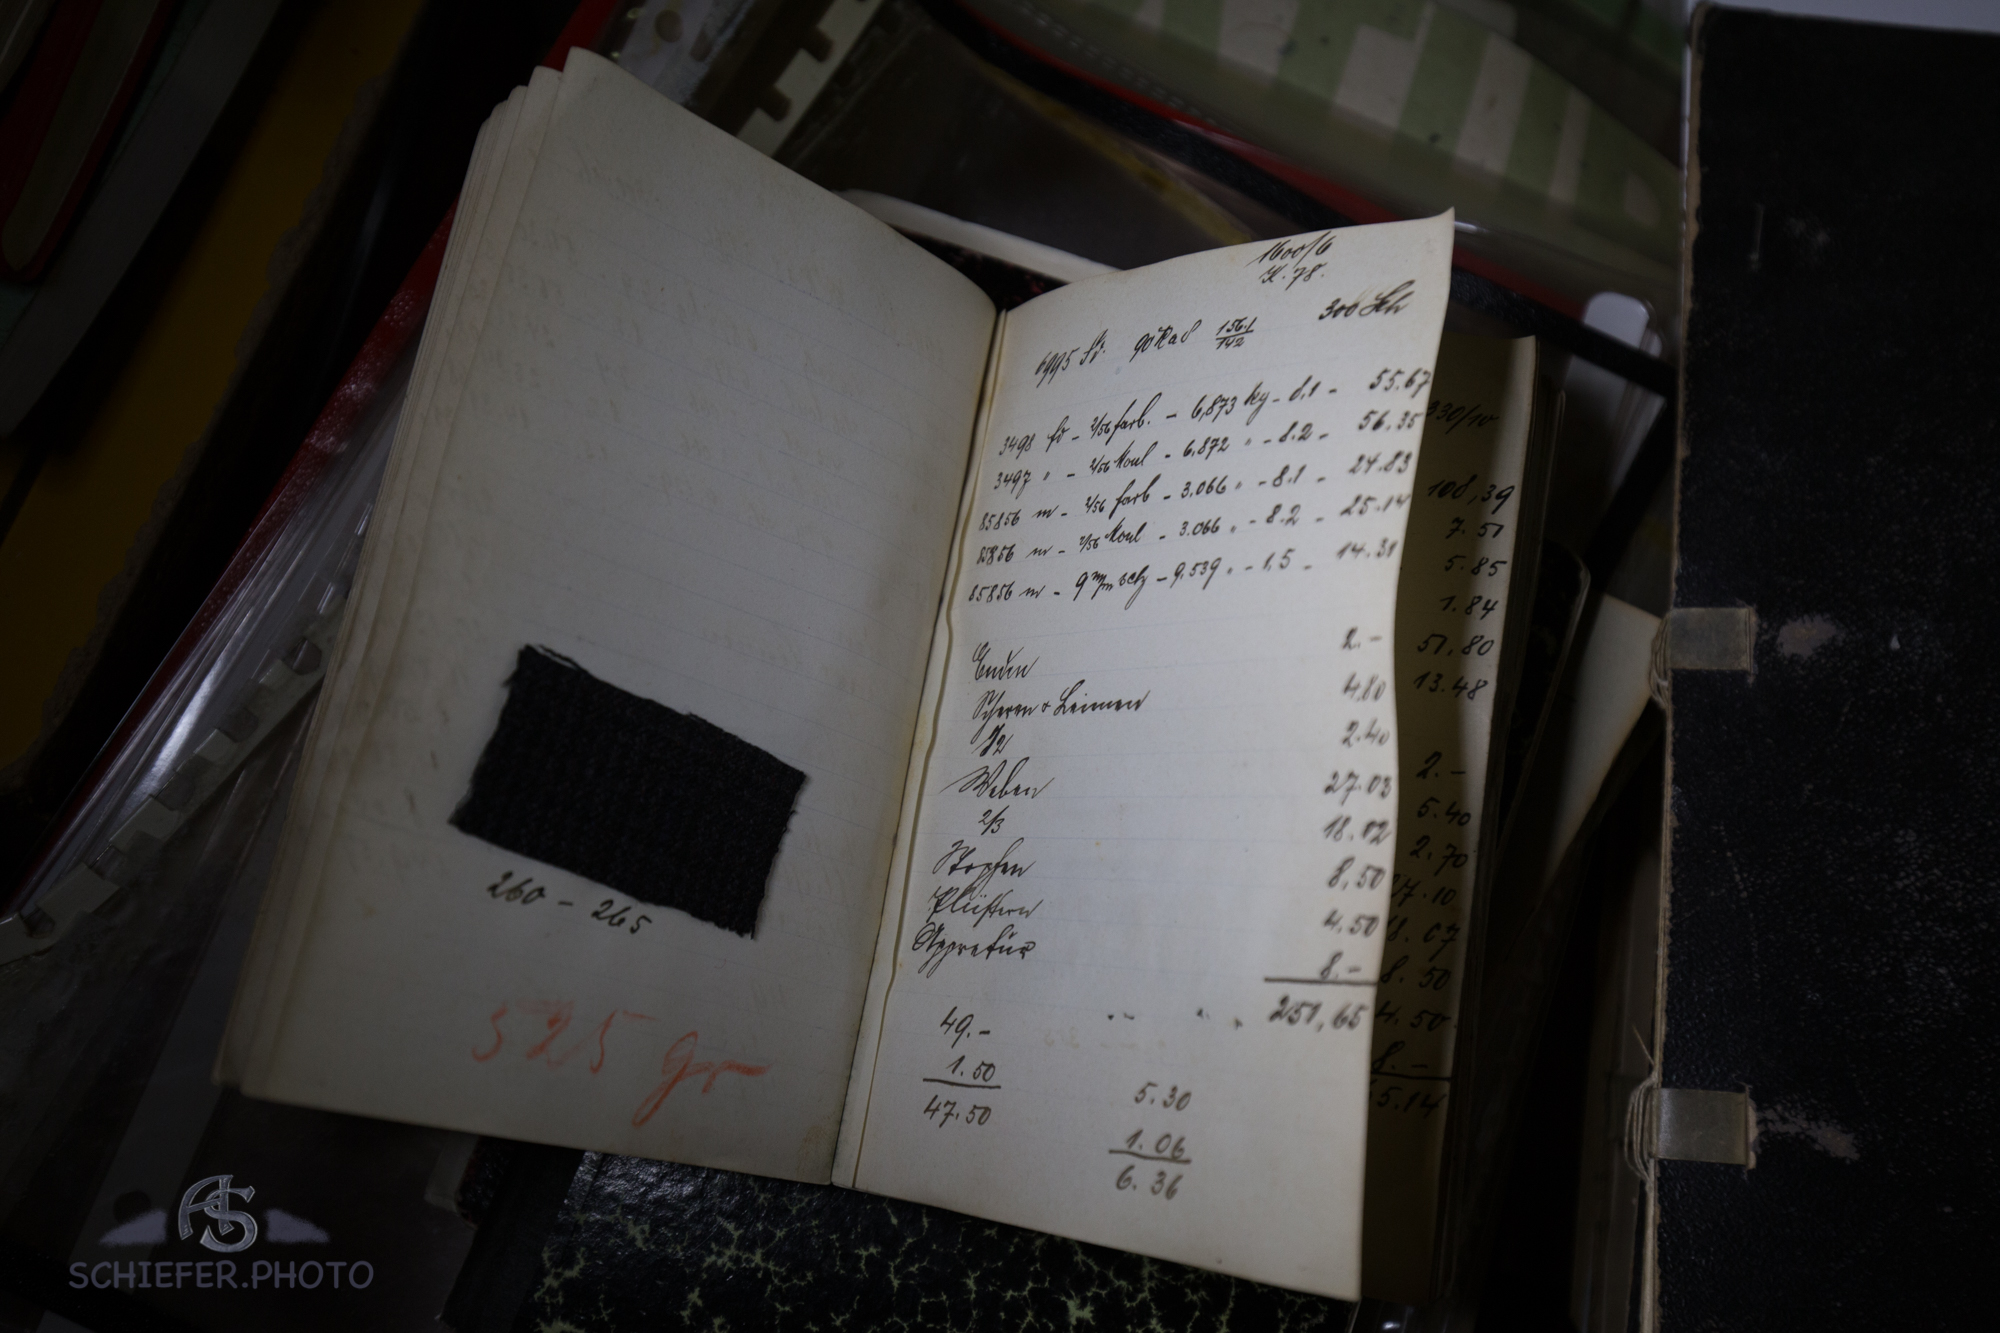 260 - 265
525 gr
1600/6
K. 78.
300 Sch
6995 fd. 156.1
142
3498 fd - 2/56 farb. - 6,873 kg - 8,1 - 55.67
3497 " - 2/56 - 6,872 " - 8.2 - 56.35
85856 m - 2/56 farb - 3.066 " - 8.1 - 24.83
85856 m - 2/56 - 3.066 " - 8.2 - 25.14
85856 m - 9 - 9,539 " - 1,5 - 14.31
Enden 2.-
Scheren & Leimen 4,80
1/2 2.40
Weben 27.03
2/3 18.02
Stopfen 8,50
4.50
Appretur 8.-
251,65
49.-
1.50
47.50
5.30
1.06
6.36
330/10
108,39
7.51
5.85
1.84
51.80
13.48
2.-
5.40
2.70
7.10
8.67
8.50
4.50
8.-
5.14
AS
SCHIEFER.PHOTO